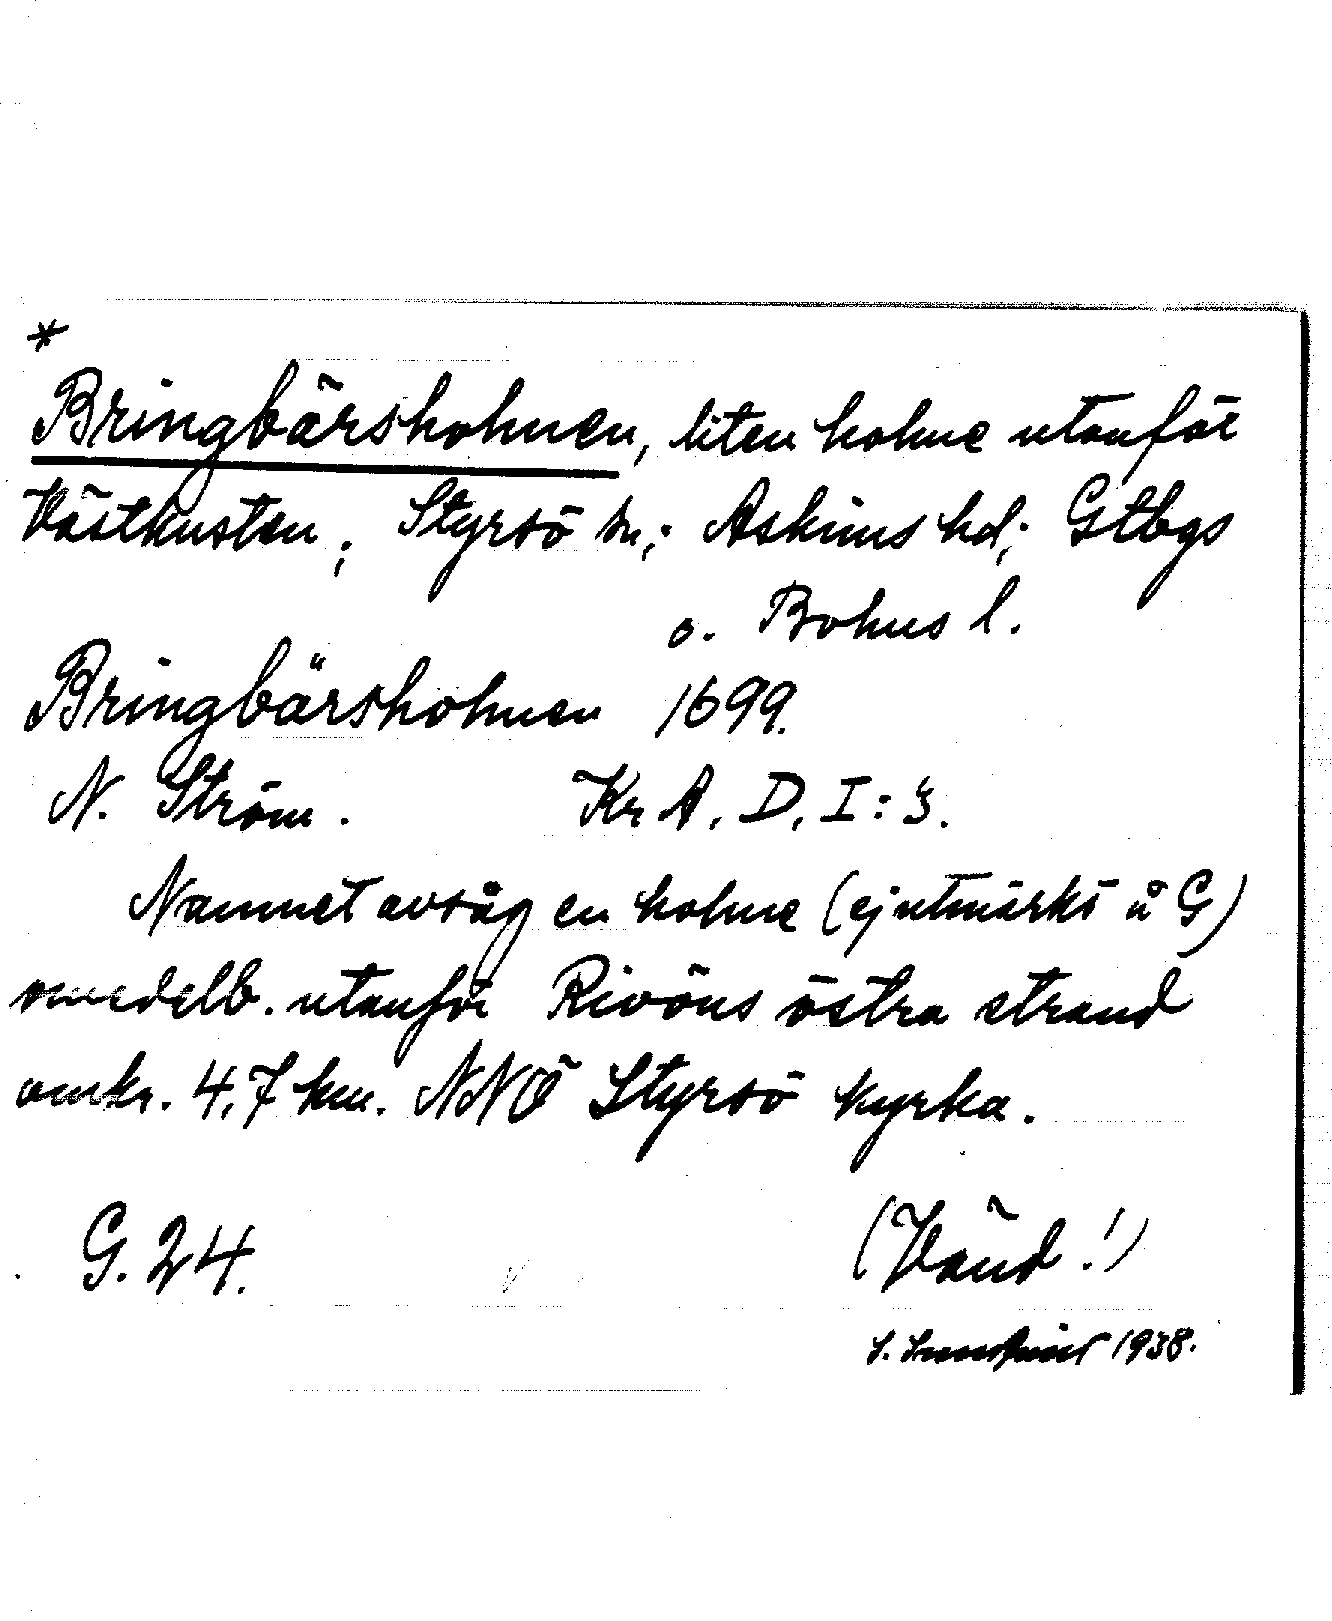 *
Bringbärsholmen, liten holme utanför
Västkusten; Styrsö sn; Askims hd; Gtbgs
o. Bohus l.
Bringbärsholmen 1699.
N. Ström. Kr A. D. I:3.
Namnet avsåg en holme (ej utmärkt å G)
omedelb. utanför Rivöns östra strand
omkr. 4,7 km. NNÖ Styrsö kyrka.
G. 24. (Vänd!)
1938.